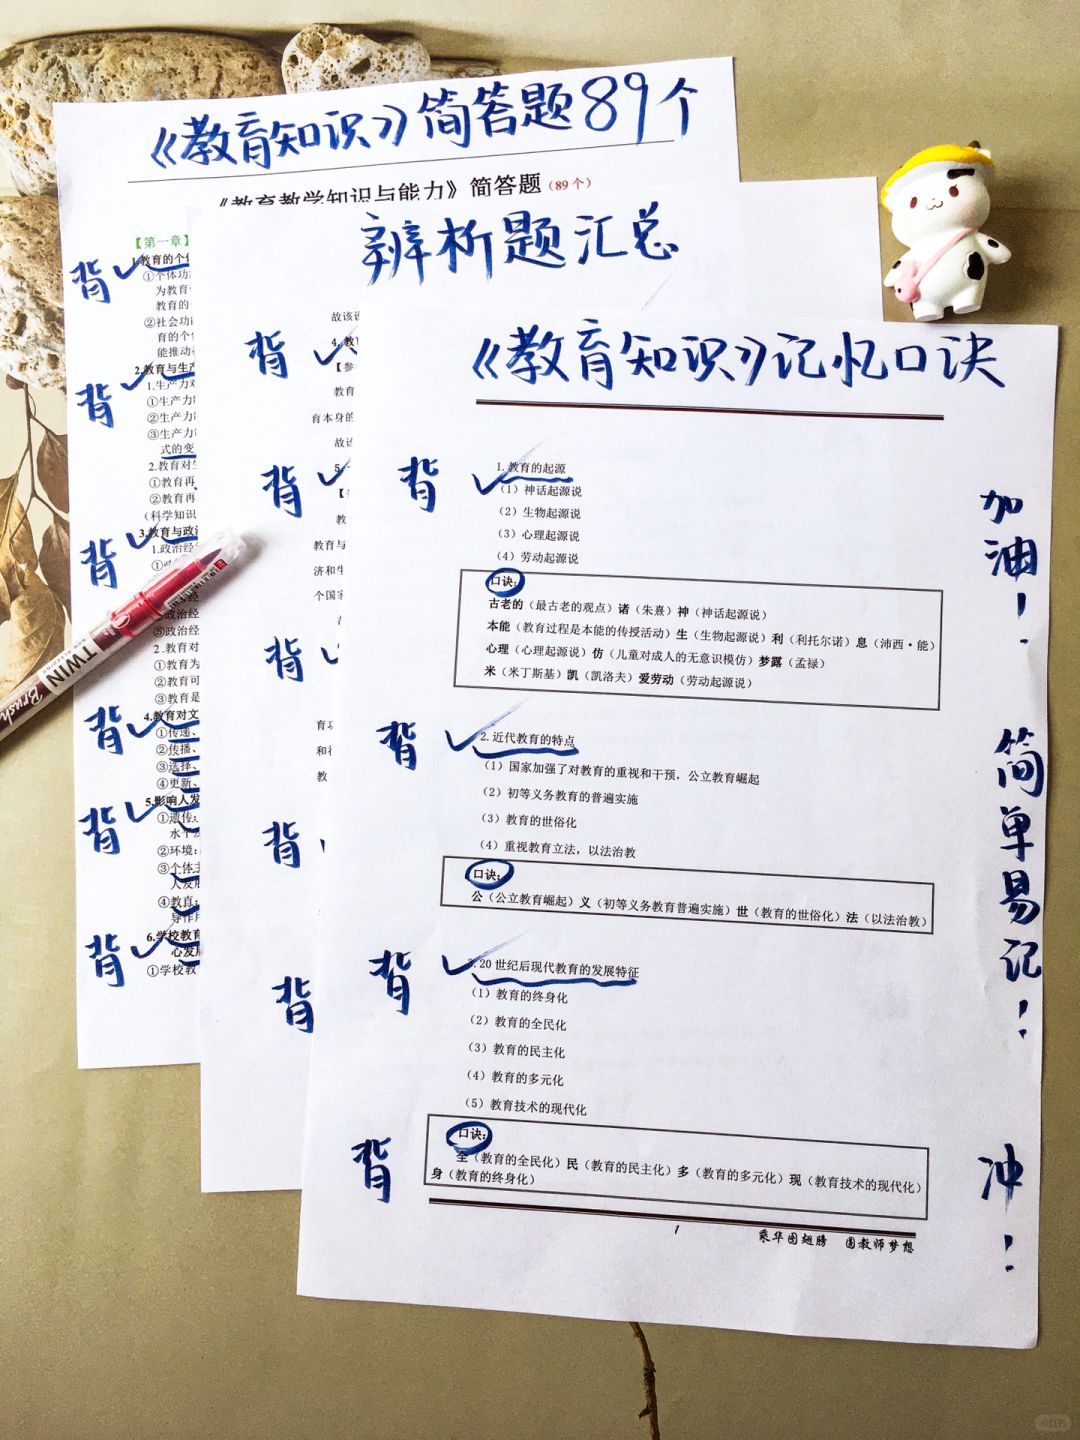 《教育知识》简答题89个
《教育教学知识与能力》简答题（89个）
【第一章】
背
1.教育的个体
①个体功
为教育
教育的
②社会功
育的个
能推动
背
2.教育与生产
1.生产力对
①生产力
②生产力
③生产力
式的变
2.教育对生
①教育再
②教育再
（科学知识
背
3.教育与政治
1.政治经
⑤政治经
2.教育对
①教育为
②教育可
③教育是
背
4.教育对文
①传递、
②传播、
③选择、
④更新、
背
5.影响人发
①遗传：
水平
②环境：
③个体主
人发展
④教育：
导作用
背
6.学校教育
心发展
①学校教
TWIN
Brush
辨析题汇总
故该说
背
4.教
【参
教育
育本身的
故该
背
5.
教
教育与
济和生
个国家
背
育功
和社
教
背
背
《教育知识》记忆口诀
背
1.教育的起源
（1）神话起源说
（2）生物起源说
（3）心理起源说
（4）劳动起源说
口诀：
古老的（最古老的观点）诸（朱熹）神（神话起源说）
本能（教育过程是本能的传授活动）生（生物起源说）利（利托尔诺）息（沛西·能）
心理（心理起源说）仿（儿童对成人的无意识模仿）梦露（孟禄）
米（米丁斯基）凯（凯洛夫）爱劳动（劳动起源说）
背
2.近代教育的特点
（1）国家加强了对教育的重视和干预，公立教育崛起
（2）初等义务教育的普遍实施
（3）教育的世俗化
（4）重视教育立法，以法治教
口诀：
公（公立教育崛起）义（初等义务教育普遍实施）世（教育的世俗化）法（以法治教）
背
3.20世纪后现代教育的发展特征
（1）教育的终身化
（2）教育的全民化
（3）教育的民主化
（4）教育的多元化
（5）教育技术的现代化
背
口诀：
全（教育的全民化）民（教育的民主化）多（教育的多元化）现（教育技术的现代化）
身（教育的终身化）
1
乘华图翅膀 圆教师梦想
加油！
简单易记！
冲！
小红书